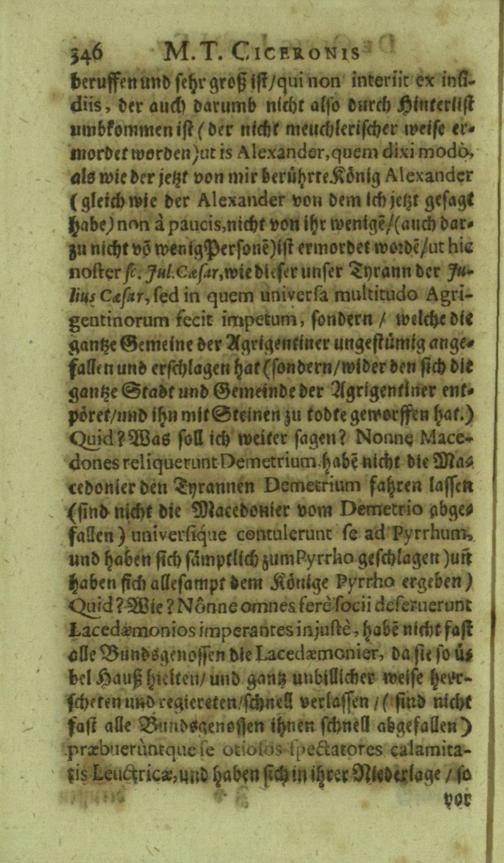 346 M. T. CICERONIS
beruffen und sehr groß ist/qui non interiit ex insi-
diis, der auch darumb nicht also durch Hinterlist
umbkommen ist (der nicht meuchlerischer weise er-
mordet worden) ut is Alexander, quem dixi modò,
als wie der jetzt von mir berührte König Alexander
(gleich wie der Alexander von dem ich jetzt gesagt
habe) non à paucis, nicht von ihr wenigẽ/(auch dar-
zu nicht võ wenig Personẽ) ist ermordet wordẽ/ut hic
noster sc. Jul. Cæsar, wie dieser unser Tyrann der Ju-
lius Cæsar, sed in quem universa multitudo Agri-
gentinorum fecit impetum, sondern / welche die
gantze Gemeine der Agrigentiner ungestümig ange-
fallen und erschlagen hat (sondern/wider den sich die
gantze Stadt und Gemeinde der Agrigentiner ent-
pöret/und ihn mit Steinen zu todte geworffen hat.)
Quid? Was soll ich weiter sagen? Nonne Mace-
dones reliquerunt Demetrium, habẽ nicht die Ma-
cedonier den Tyrannen Demetrium fahren lassen
(sind nicht die Macedonier vom Demetrio abge-
fallen) universique contulerunt se ad Pyrrhum,
und haben sich sämptlich zum Pyrrho geschlagen) uñ
haben sich allesampt dem Könige Pyrrho ergeben)
Quid? Wie? Nônne omnes ferè socii deseruerunt
Lacedæmonios imperantes injustè, habẽ nicht fast
alle Bundsgenossen die Lacedæmonier, da sie so ü-
bel Hauß hielten/ und gantz unbillicher weise herr-
scheten und regiereten/schnell verlassen /( sind nicht
fast alle Bundsgenossen ihnen schnell abgefallen)
præbuerúntque se otiosos spectatores calamita-
tis Leuctricæ, und haben sich in ihrer Niederlage / so
vor